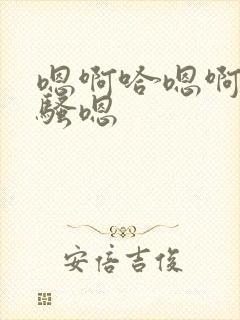 嗯啊哈~嗯啊
骚嗯
安倍吉俊